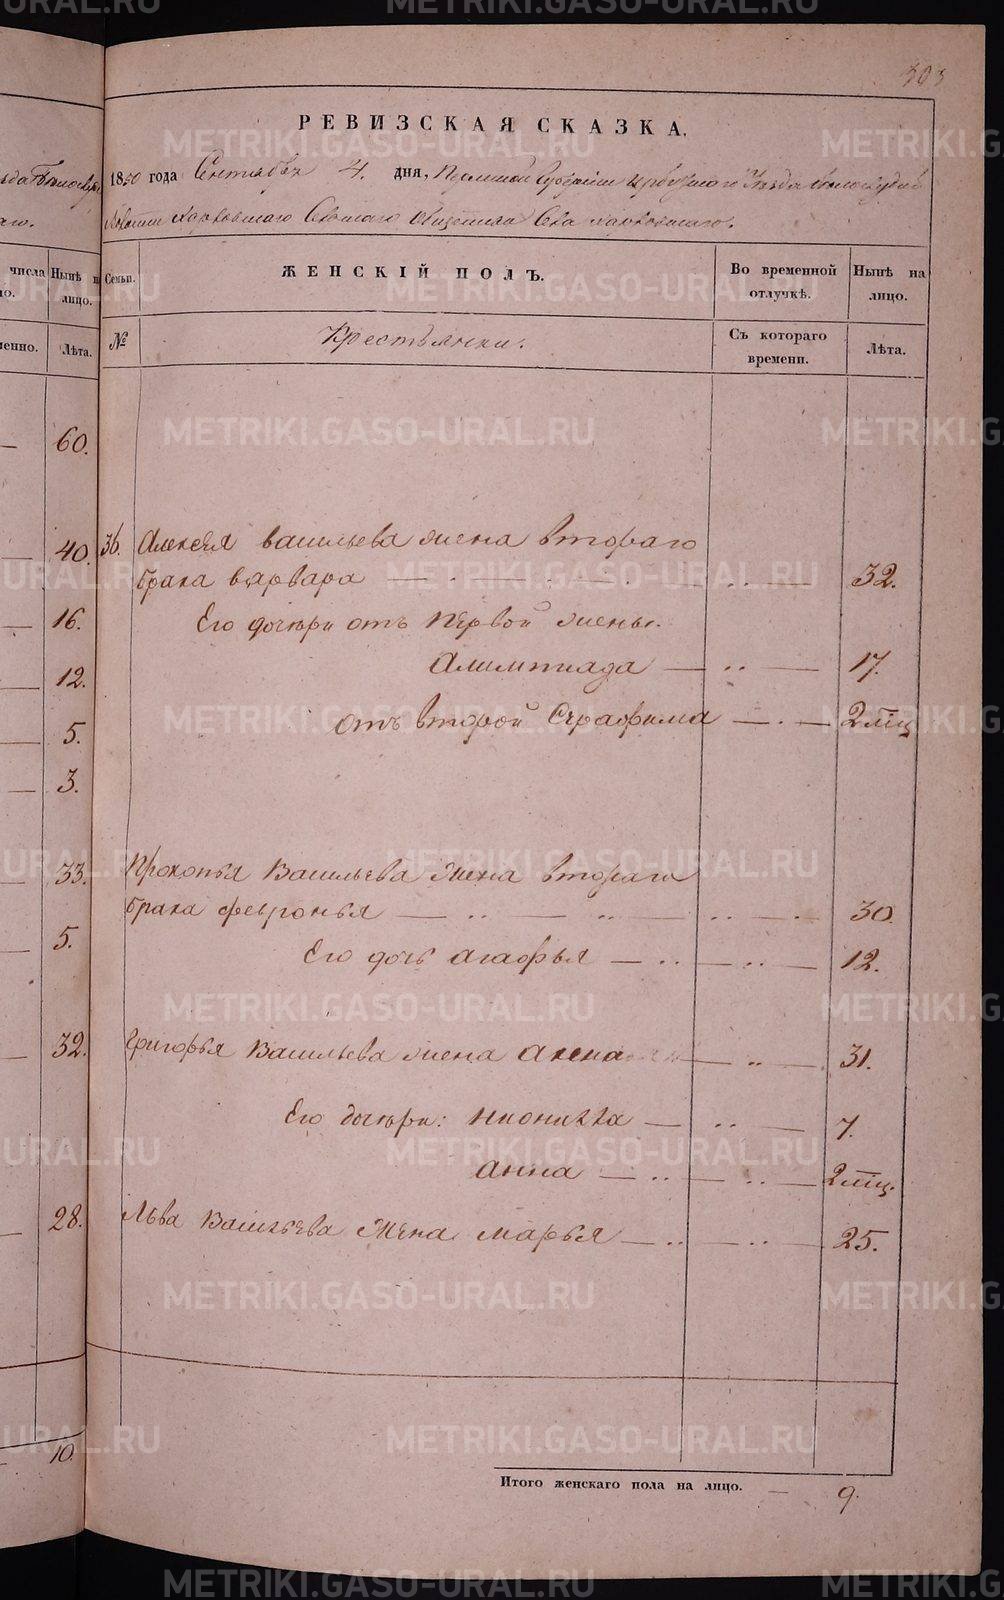 303
РЕВИЗСКАЯ СКАЗКА.
1850 года Сентября 4. дня, Пермской Губернии Ирбитскаго Уезда Белослудской
Волости Харловскаго Сельскаго общества Села Харловскаго.
числа Нынѣ н
лицо.
Лѣта.
Семьи. ЖЕНСКІЙ ПОЛЪ. Во временной отлучкѣ. Нынѣ на лицо.
№ Крестьянки. Съ котораго времени. Лѣта.
60.
40. 36. Алексея васильева жена втораго
брака варвара 32.
16. Его дочери отъ первой жены.
12. Алимпиада 17.
5. отъ второй Серафима 2 мѣц
3.
33. Прокопья Васильева жена втораго
брака февронья 30.
5. Его дочь агафья 12.
32. Григорья Васильева жена 31.
Его дочери: 7.
анна 2 мѣц.
28. Льва Васильева жена марья 25.
10.
Итого женскаго пола на лицо. 9.
METRIKI.GASO-URAL.RU